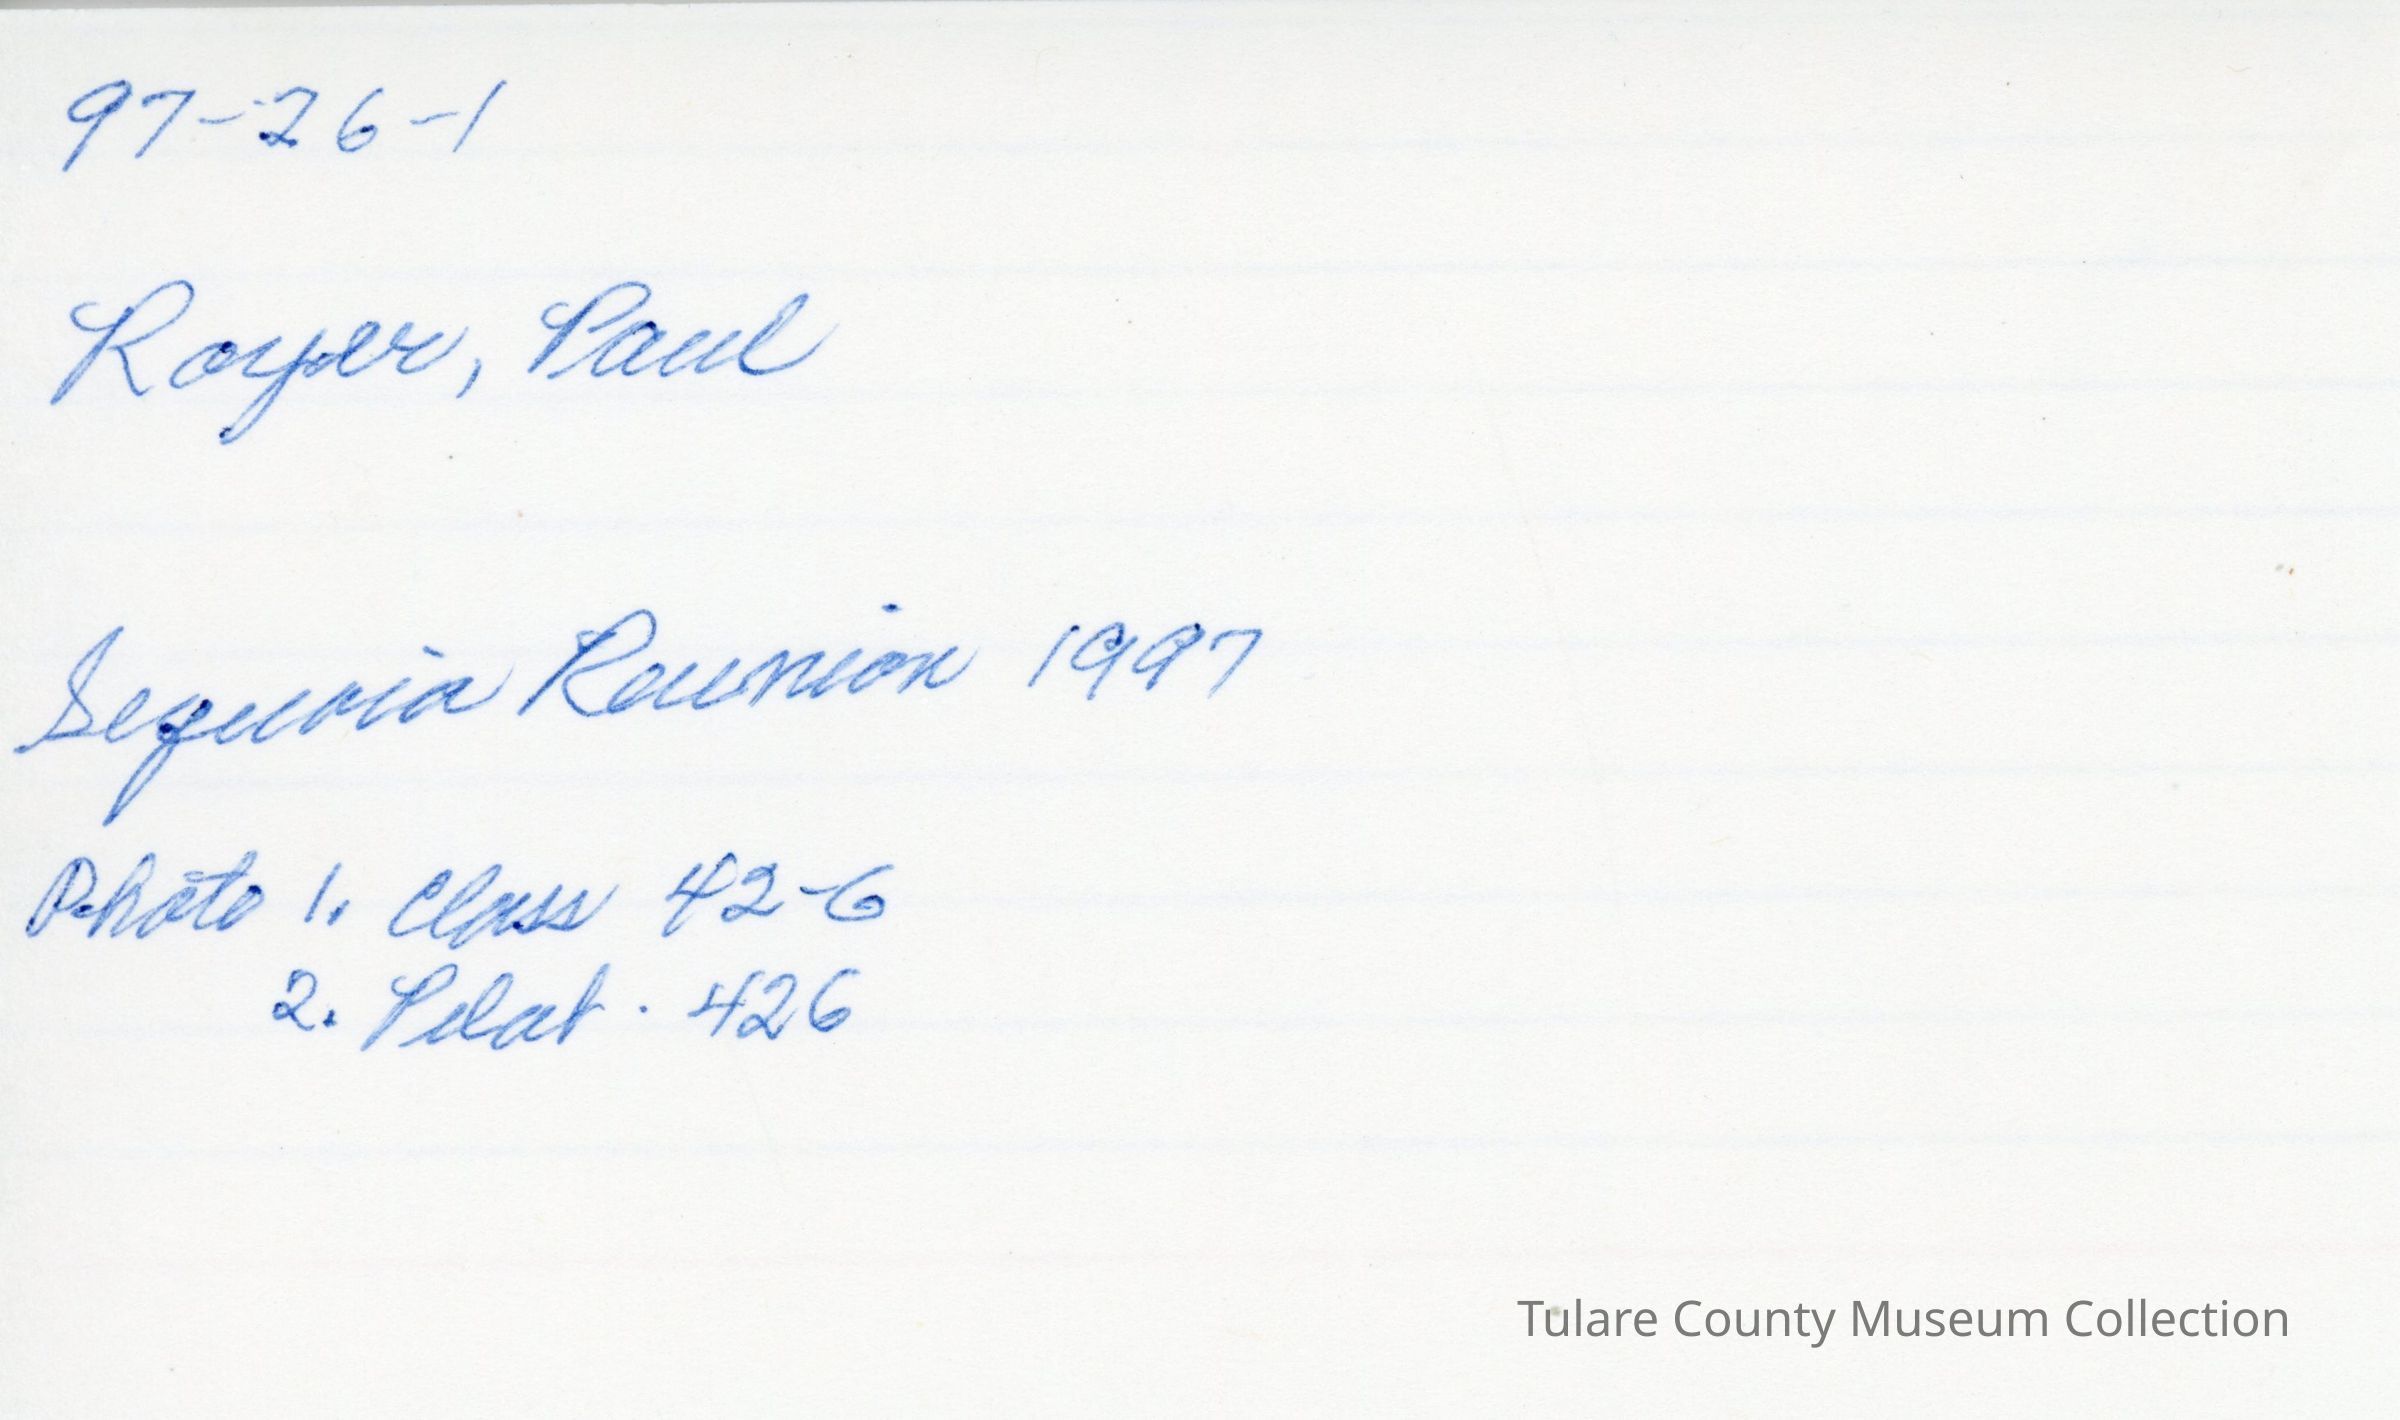 97-26-1
Royer, Paul
Sequoia Reunion 1997
Photo 1. Class 42-G
2. Pilot · 42G
Tulare County Museum Collection